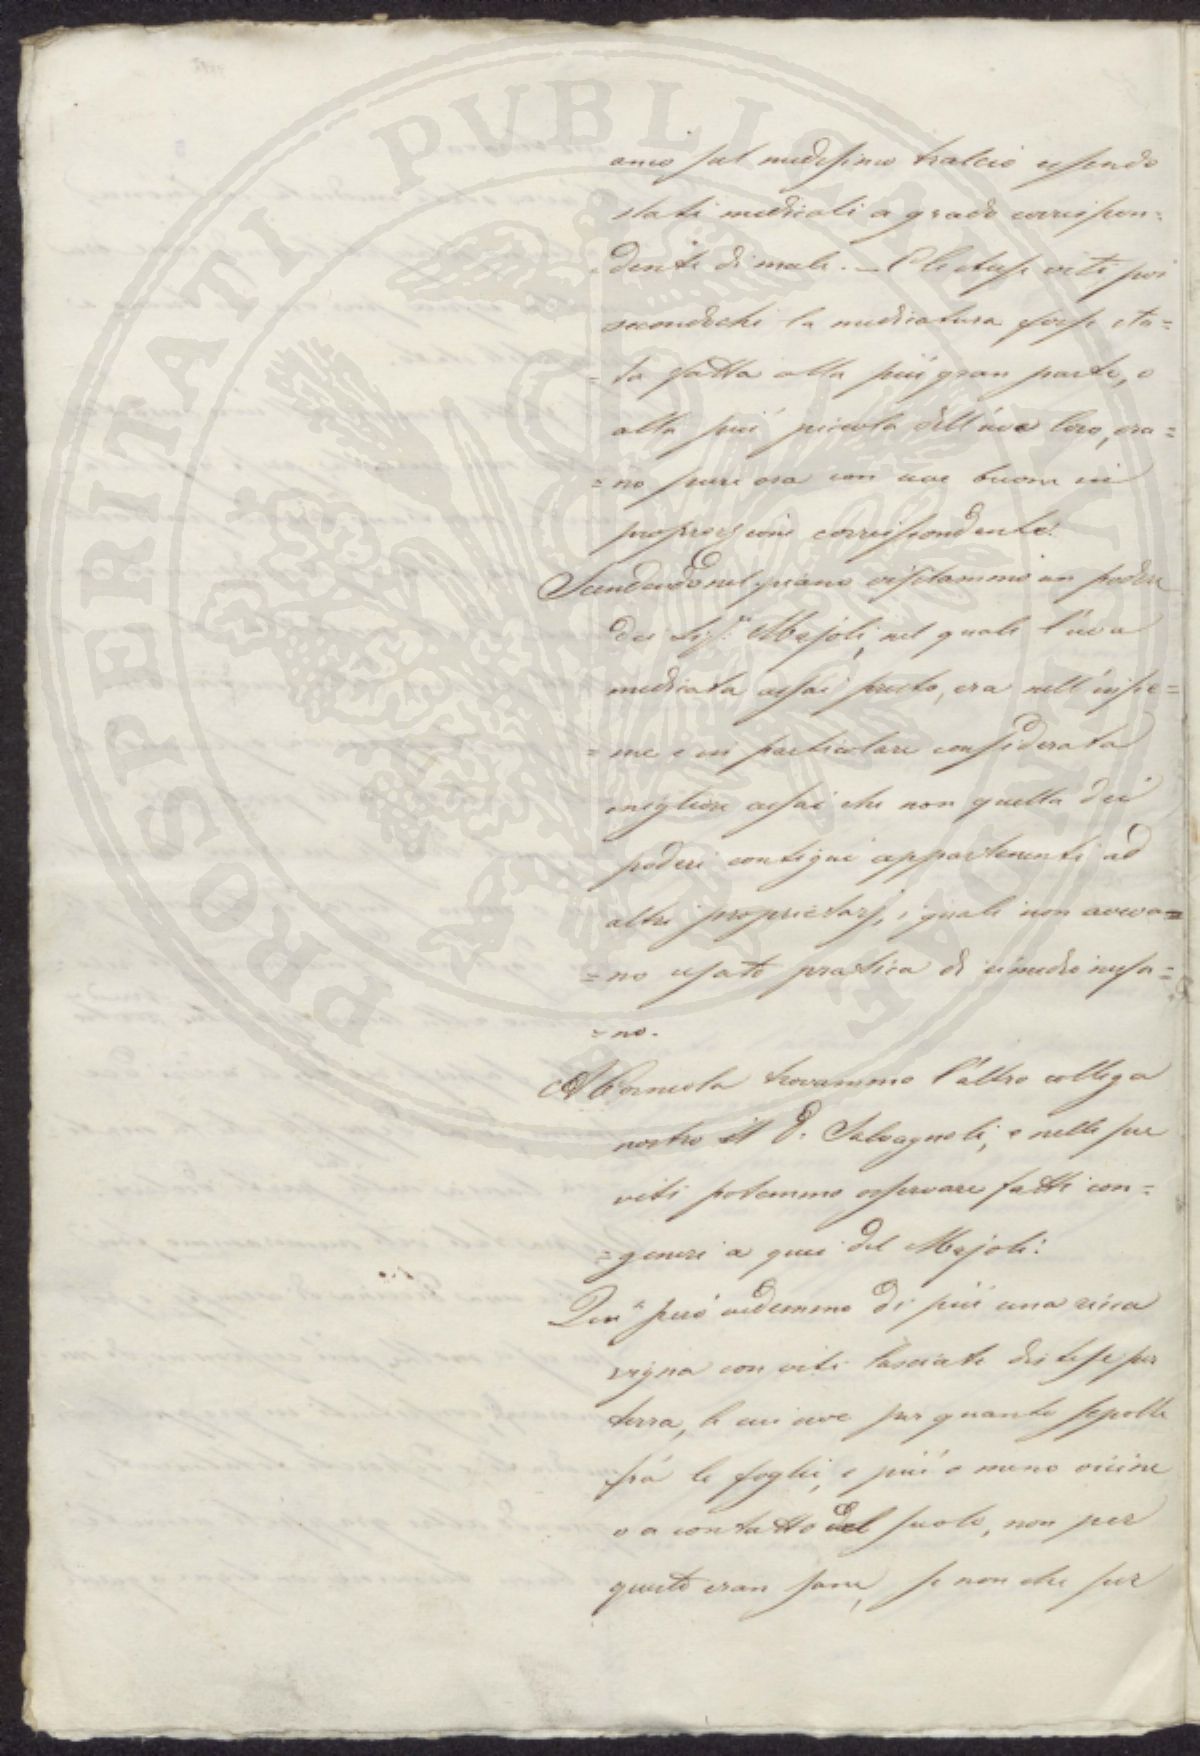 PROSPERITATI PUBLICAE AUGENDAE
anco sul medesimo tralcio essendo
stati medicati a grado corrispon:
dente di male. – E le stesse viti poi
secondochè la medicatura fosse sta=
=ta fatta alla più gran parte, o
alla più piccola dell'uva loro, era=
=no pure ora con uve buone in
proporzione corrispondente.
Scendendo nel piano visitammo un podere
dei Sigg.ri Majoli, nel quale l'uva
medicata assai presto, era nell'insie=
=me e in particolare considerata
migliore assai che non quella dei
poderi contigui appartenenti ad
altri proprietarj, i quali non aveva=
=no usato pratica di rimedio nessu=
=no.
A Corniola trovammo l'altro collega
nostro il D. Salvagnoli, e nelle sue
viti potemmo osservare fatti con=
=generi a quei del Majoli:
Quì però vedemmo di più una ricca
vigna con viti lasciate distese per
terra, le cui uve per quanto sepolte
frà le foglie, e più o meno vicine
o a contatto del suolo, non per
questo eran sane, se non che per